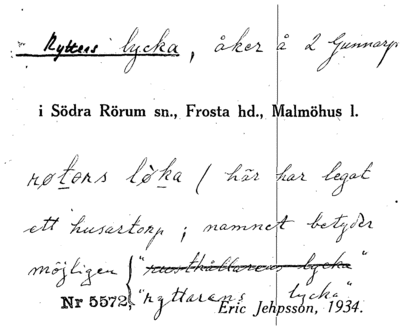 "Ryttens lycka, åker å 2 Gunnarp
i Södra Rörum sn., Frosta hd., Malmöhus l.
røtens lǒka / här har legat
ett husartorp; namnet betyder
möjligen { "rusthållarens lycka"
Nr 5572. "ryttarens lycka"
Eric Jehpsson, 1934.